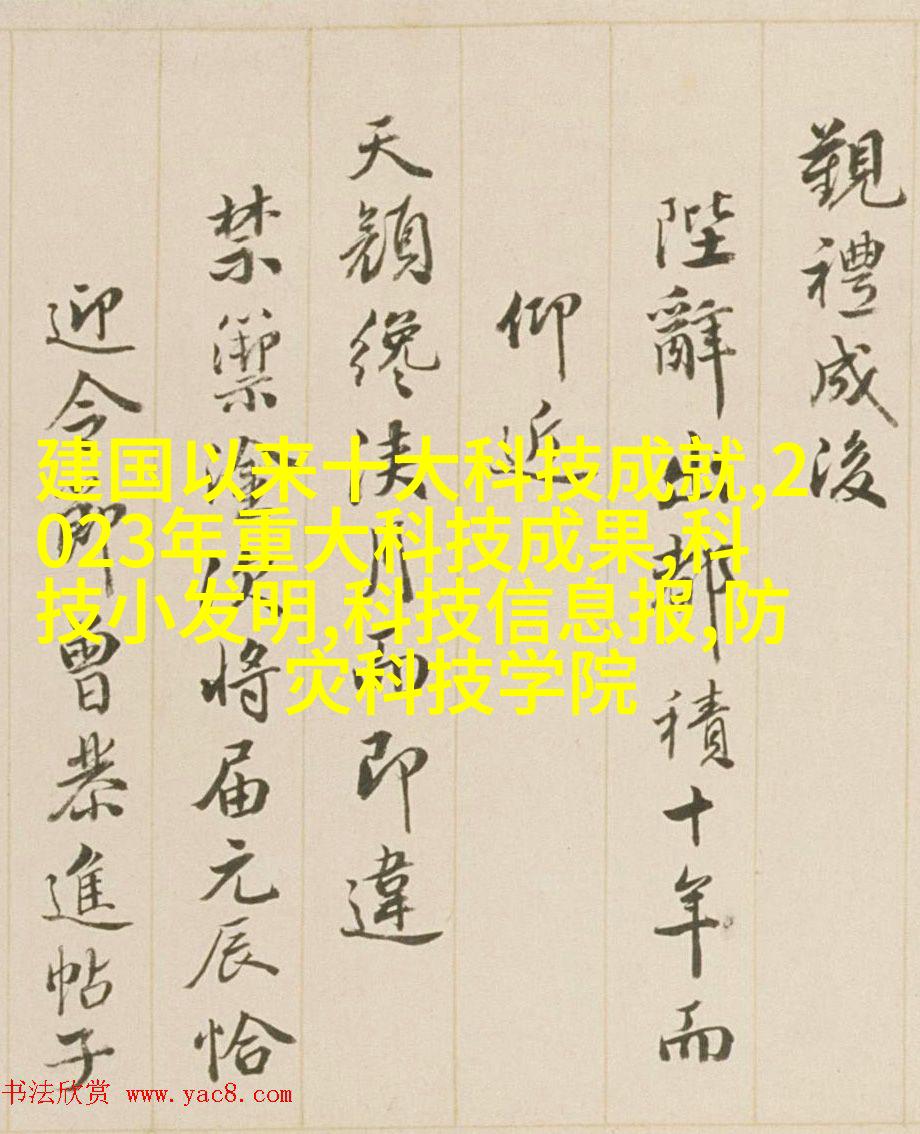 觀禮成後
陛辭出都積十年而
仰近
天顏纔浹月而即違
禁籞塗次將届元辰恰
迎令節曾恭進帖子
建国以来十大科技成就,2
023年重大科技成果,科
技小发明,科技信息报,防
灾科技学院
书法欣赏 www.yac8.com